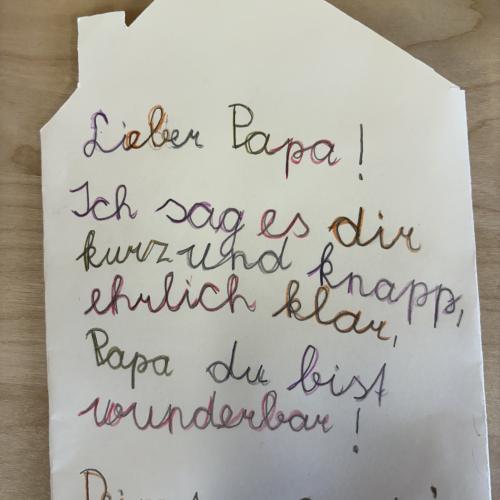 Lieber Papa!
Ich sag es dir
kurz und knapp,
ehrlich klar,
Papa du bist
wunderbar!